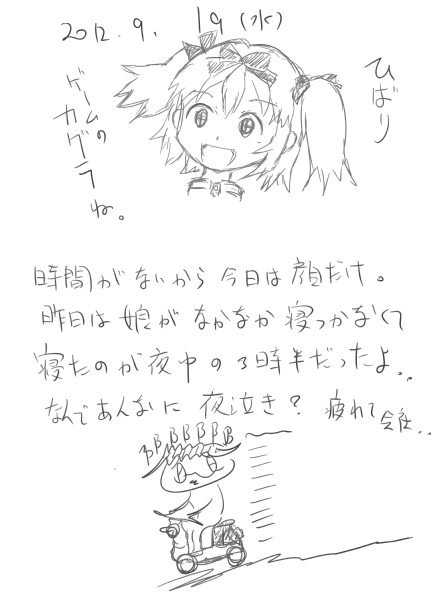 2012.9.19(水)
ひばり
ゲームの
カグラ
ね。
時間がないから今日は顔だけ。
昨日は娘がなかなか寝つかなくて
寝たのが夜中の3時半だったよ..
なんであんなに夜泣き?疲れて会社..